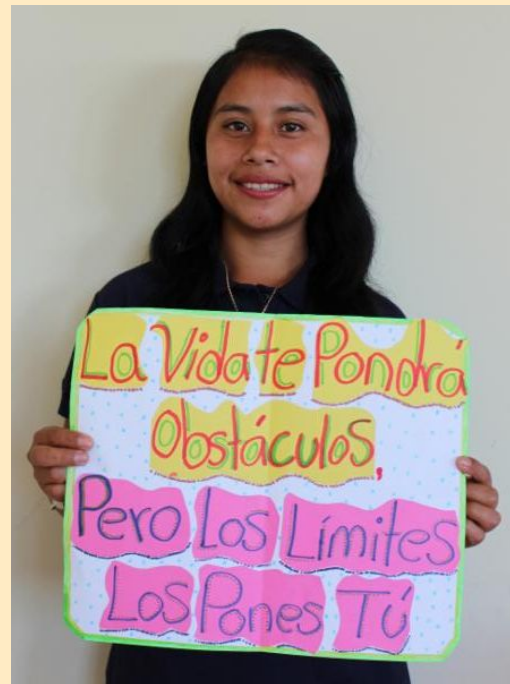 La Vida te Pondrá
Obstáculos,
Pero Los Límites
Los Pones Tú